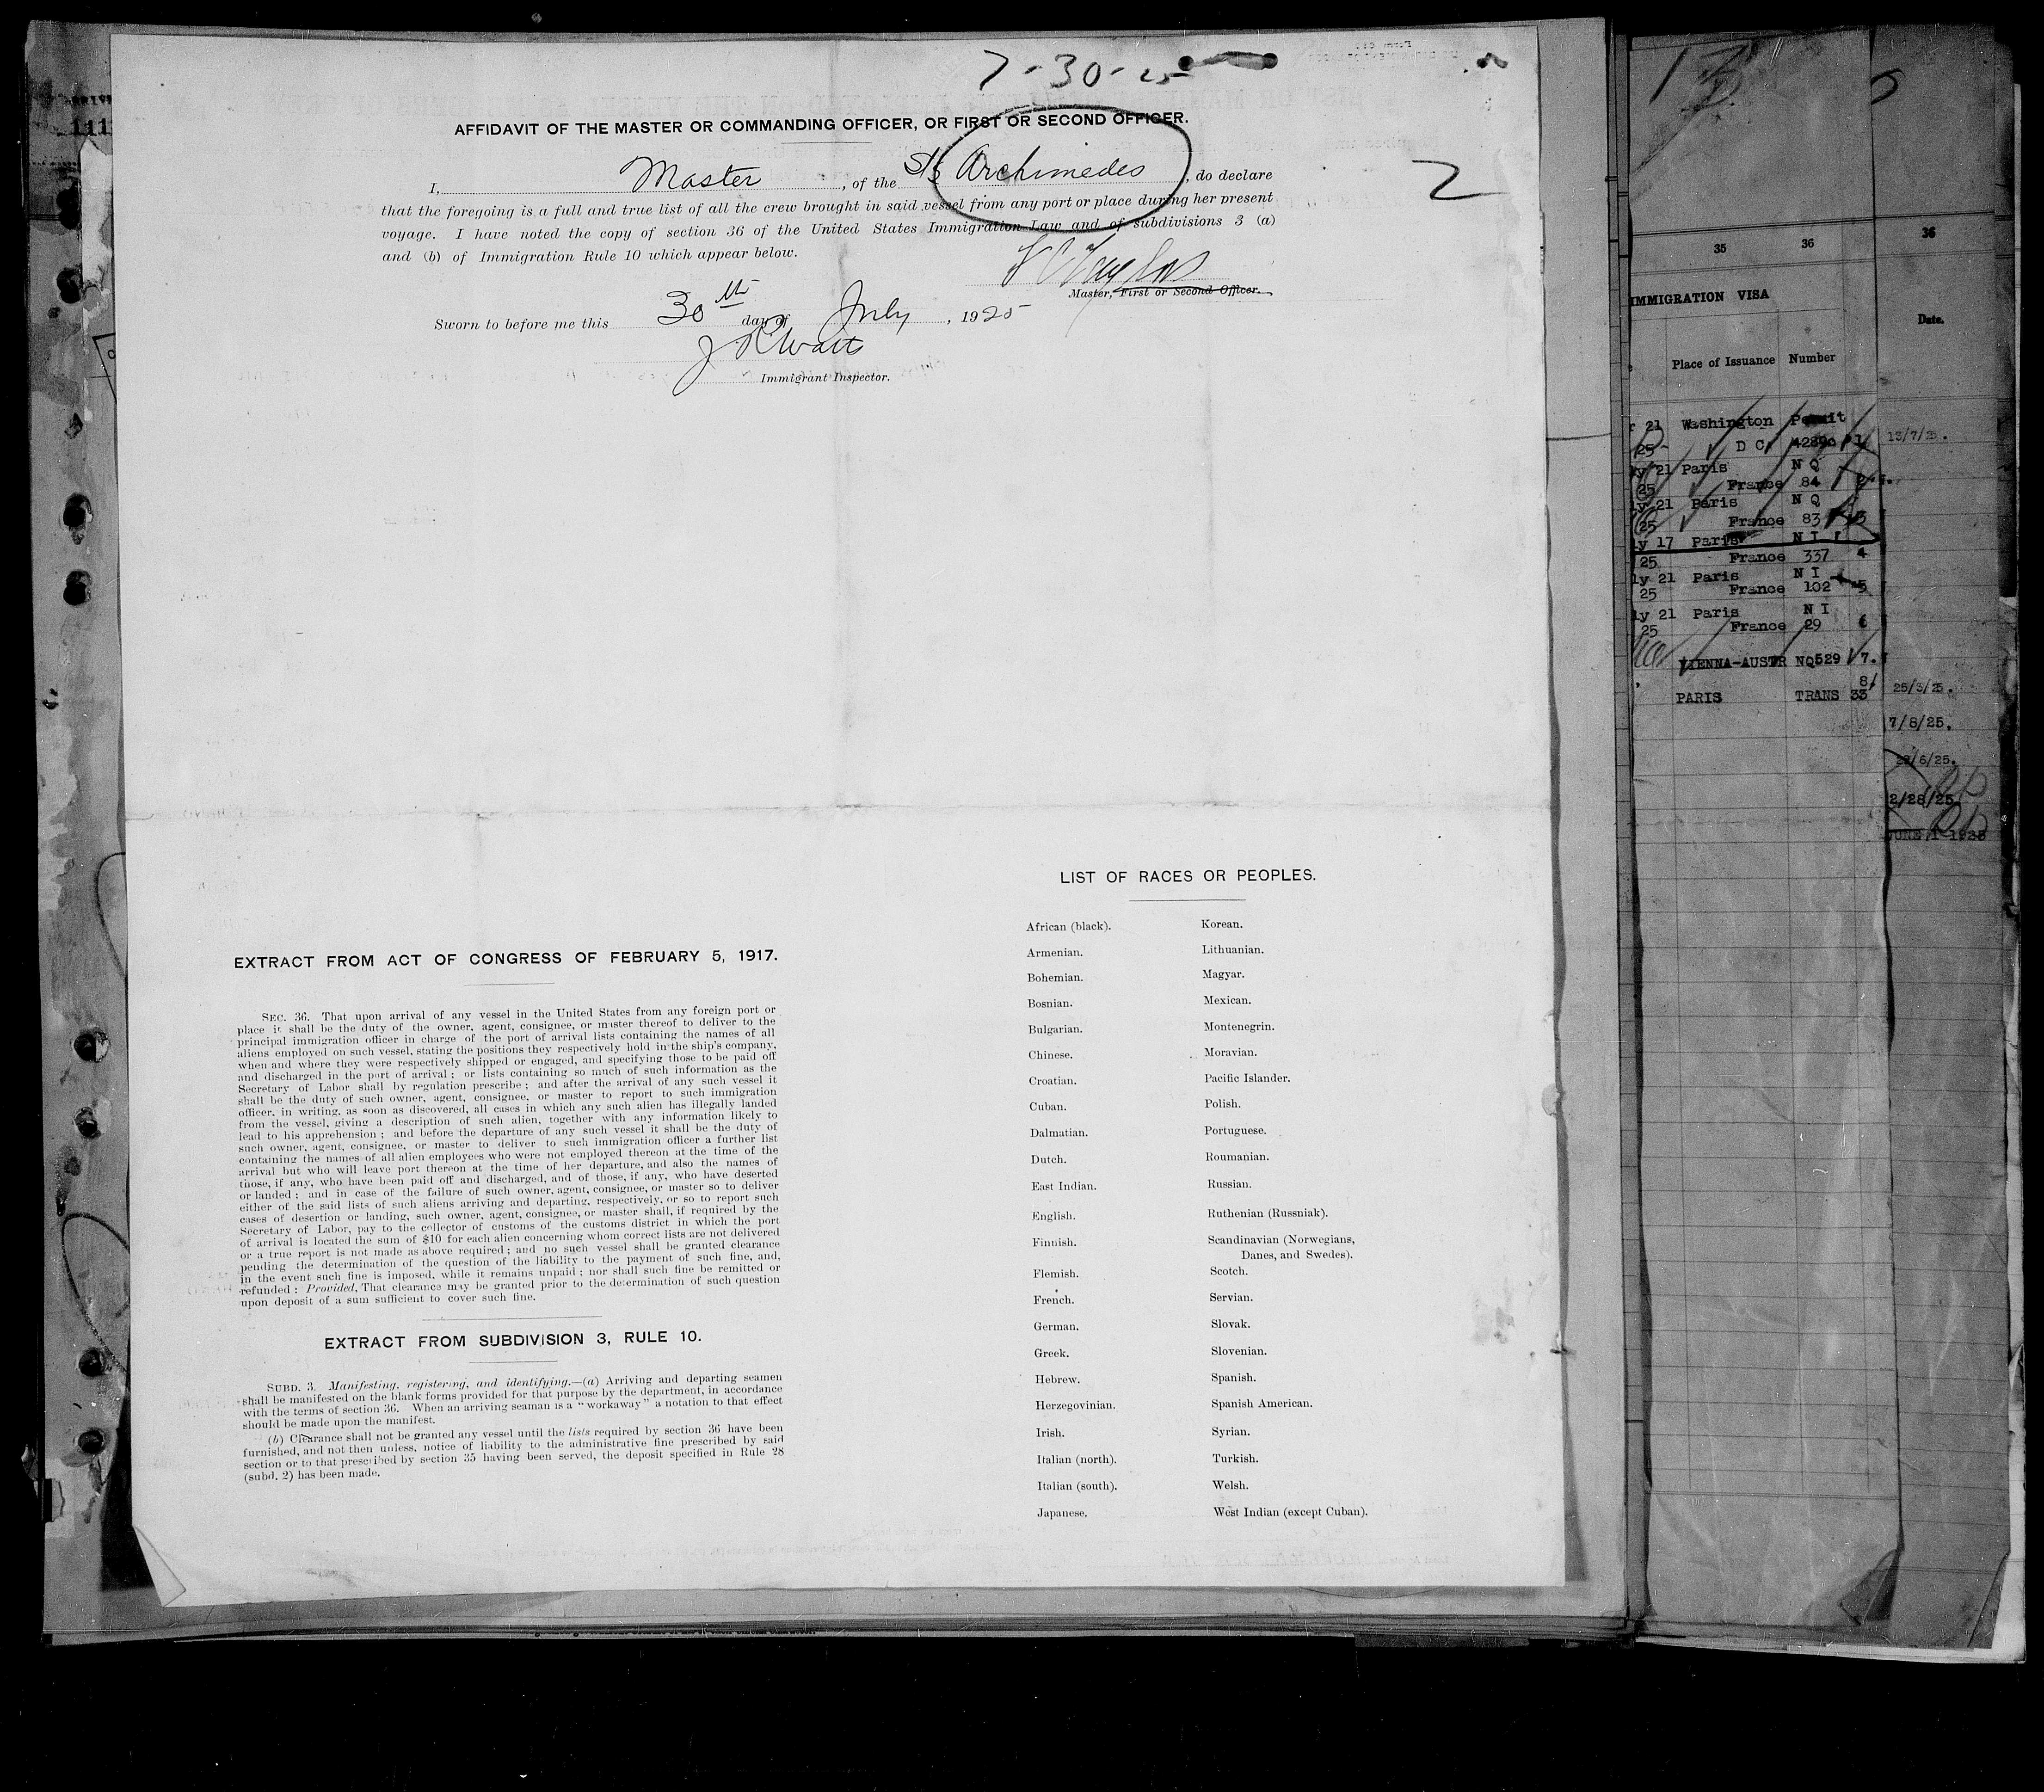 7-30-25
AFFIDAVIT OF THE MASTER OR COMMANDING OFFICER, OR FIRST OR SECOND OFFICER.
2
I, Master, of the S/S Archimedes, do declare
that the foregoing is a full and true list of all the crew brought in said vessel from any port or place during her present
voyage. I have noted the copy of section 36 of the United States Immigration Law and of subdivisions 3 (a)
and (b) of Immigration Rule 10 which appear below.
Master, First or Second Officer.
Sworn to before me this 30th day of July, 1925
Immigrant Inspector.
EXTRACT FROM ACT OF CONGRESS OF FEBRUARY 5, 1917.
SEC. 36. That upon arrival of any vessel in the United States from any foreign port or
place it shall be the duty of the owner, agent, consignee, or master thereof to deliver to the
principal immigration officer in charge of the port of arrival lists containing the names of all
aliens employed on such vessel, stating the positions they respectively hold in the ship's company,
when and where they were respectively shipped or engaged, and specifying those to be paid off
and discharged in the port of arrival; or lists containing so much of such information as the
Secretary of Labor shall by regulation prescribe; and after the arrival of any such vessel it
shall be the duty of such owner, agent, consignee, or master to report to such immigration
officer, in writing, as soon as discovered, all cases in which any such alien has illegally landed
from the vessel, giving a description of such alien, together with any information likely to
lead to his apprehension; and before the departure of any such vessel it shall be the duty of
such owner, agent, consignee, or master to deliver to such immigration officer a further list
containing the names of all alien employees who were not employed thereon at the time of the
arrival but who will leave port thereon at the time of her departure, and also the names of
those, if any, who have been paid off and discharged, and of those, if any, who have deserted
or landed; and in case of the failure of such owner, agent, consignee, or master so to deliver
either of the said lists of such aliens arriving and departing, respectively, or so to report such
cases of desertion or landing, such owner, agent, consignee, or master shall, if required by the
Secretary of Labor, pay to the collector of customs of the customs district in which the port
of arrival is located the sum of $10 for each alien concerning whom correct lists are not delivered
or a true report is not made as above required; and no such vessel shall be granted clearance
pending the determination of the question of the liability to the payment of such fine, and,
in the event such fine is imposed, while it remains unpaid; nor shall such fine be remitted or
refunded: Provided, That clearance may be granted prior to the determination of such question
upon deposit of a sum sufficient to cover such fine.
EXTRACT FROM SUBDIVISION 3, RULE 10.
SUBD. 3. Manifesting, registering, and identifying.—(a) Arriving and departing seamen
shall be manifested on the blank forms provided for that purpose by the department, in accordance
with the terms of section 36. When an arriving seaman is a "workaway" a notation to that effect
should be made upon the manifest.
(b) Clearance shall not be granted any vessel until the lists required by section 36 have been
furnished, and not then unless, notice of liability to the administrative fine prescribed by said
section or to that prescribed by section 35 having been served, the deposit specified in Rule 28
(subd. 2) has been made.
LIST OF RACES OR PEOPLES.
African (black).
Armenian.
Bohemian.
Bosnian.
Bulgarian.
Chinese.
Croatian.
Cuban.
Dalmatian.
Dutch.
East Indian.
English.
Finnish.
Flemish.
French.
German.
Greek.
Hebrew.
Herzegovinian.
Irish.
Italian (north).
Italian (south).
Japanese.
Korean.
Lithuanian.
Magyar.
Mexican.
Montenegrin.
Moravian.
Pacific Islander.
Polish.
Portuguese.
Roumanian.
Russian.
Ruthenian (Russniak).
Scandinavian (Norwegians,
Danes, and Swedes).
Scotch.
Servian.
Slovak.
Slovenian.
Spanish.
Spanish American.
Syrian.
Turkish.
Welsh.
West Indian (except Cuban).
35 36
IMMIGRATION VISA
Place of Issuance Number
21 Washington Permit
25 D C 1
21 Paris N Q
25 France 84
21 Paris N Q
25 France 83
ly 17 Paris N I
25 France 337 4
ly 21 Paris N I
25 France 102 5
ly 21 Paris N I
25 France 29 6
VIENNA-AUSTR NQ529 7.
8
PARIS TRANS 33
36
Date.
13/7/25.
25/3/25.
7/8/25.
/6/25.
2/28/25.
JUNE 1 1925